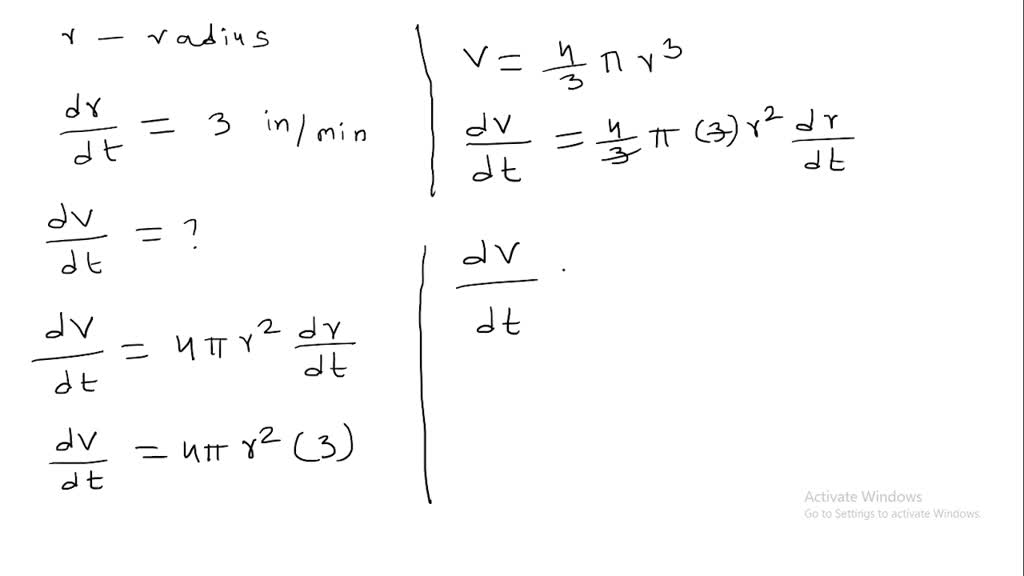 r - radius
dr/dt = 3 in/min
dV/dt = ?
dV/dt = 4πr² dr/dt
dV/dt = 4πr² (3)
V = 4/3 πr³
dV/dt = 4/3 π (3) r² dr/dt
dV/dt
Activate Windows
Go to Settings to activate Windows.